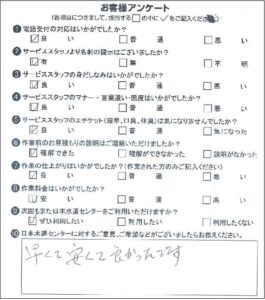 お客様アンケート
(各項目につきまして、該当する□の中に✓をご記入ください)
❶電話受付の対応はいかがでしたか?
☑良い □普通 □悪い
❷サービススタッフより名刺の提示はございましたか?
☑有 □無 □不明
❸サービススタッフの身だしなみはいかがでしたか?
☑良い □普通 □悪い
❹サービススタッフのマナー・言葉遣い・態度はいかがでしたか?
☑良い □普通 □悪い
❺サービススタッフのエチケット(座草、口臭、体臭)は気になりませんでしたか?
☑良い □普通 □気になった
❻作業前のお見積もりの説明はご理解いただけましたか?
☑理解できた □理解ができなかった □説明がなかった
❼作業の仕上がりはいかがでしたか?(作業された方のみご記入ください)
☑良い □普通 □悪い
❽作業料金はいかがでしたか?
☑安い □普通 □高い
❾次回もまた日本水道センターをご利用いただけますか?
☑ぜひ利用したい □利用したい □利用したくない
❿日本水道センターに対するご意見、ご希望などがございましたらお教えください。
早くて安くて良かったです